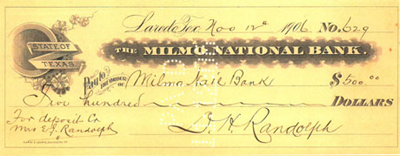 Laredo Tex Nov 12th 1906 No. 629
STATE OF TEXAS
THE MILMO NATIONAL BANK.
Pay to THE ORDER OF Milmo Nat'l Bank $500.00
Five hundred DOLLARS
For deposit Cr
Mrs E. J. Randolph
D. H. Randolph